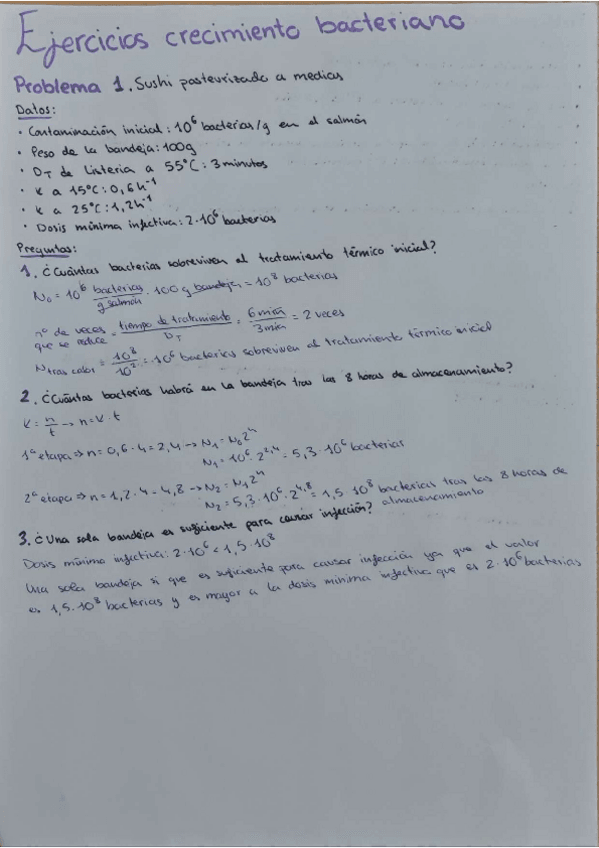 Ejercicios crecimiento bacteriano
Problema 1. Sushi pasteurizado a medias
Datos:
· Contaminación inicial: 10⁶ bacterias/g en el salmón
· Peso de la bandeja: 100g
· D_T de Listeria a 55°C: 3 minutos
· K a 15°C: 0,6 h⁻¹
· K a 25°C: 1,2 h⁻¹
· Dosis mínima infectiva: 2·10⁶ bacterias
Preguntas:
1. ¿Cuántas bacterias sobreviven al tratamiento térmico inicial?
N₀ = 10⁶ bacterias/g salmón · 100 g bandeja = 10⁸ bacterias
nº de veces que se reduce = tiempo de tratamiento/D_T = 6 min/3 min = 2 veces
N tras calor = 10⁸/10² = 10⁶ bacterias sobreviven al tratamiento térmico inicial
2. ¿Cuántas bacterias habrá en la bandeja tras las 8 horas de almacenamiento?
K = n/t → n = K·t
1ª etapa ⇒ n = 0,6·4 = 2,4 → N₁ = N₀2ⁿ
N₁ = 10⁶·2^2,4 = 5,3·10⁶ bacterias
2ª etapa ⇒ n = 1,2·4 = 4,8 → N₂ = N₁2ⁿ
N₂ = 5,3·10⁶·2^4,8 = 1,5·10⁸ bacterias tras las 8 horas de almacenamiento
3. ¿Una sola bandeja es suficiente para causar infección?
Dosis mínima infectiva: 2·10⁶ < 1,5·10⁸
Una sola bandeja si que es suficiente para causar infección ya que el valor
es 1,5·10⁸ bacterias y es mayor a la dosis mínima infectiva que es 2·10⁶ bacterias